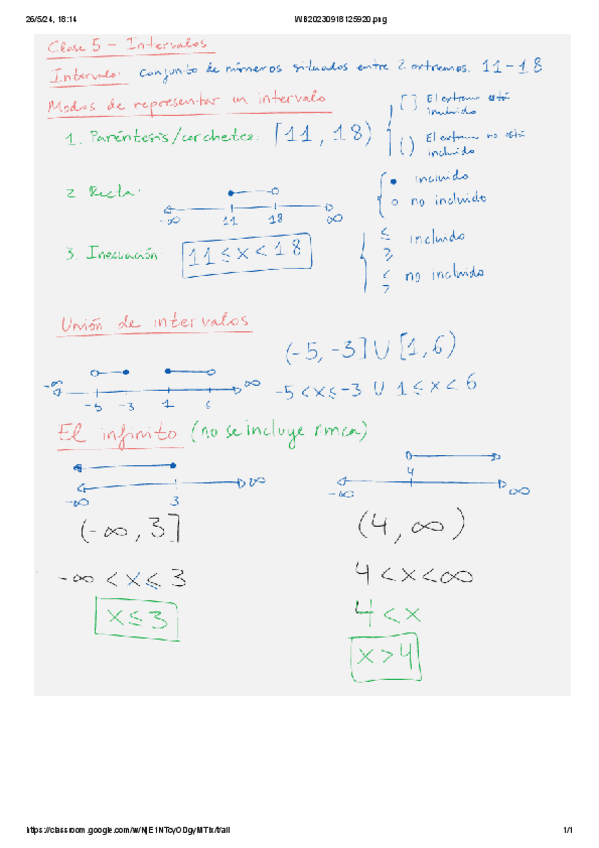 26/5/24, 18:14 WB20230918125920.png
Clase 5 - Intervalos
Intervalo: Conjunto de números situados entre 2 extremos. 11-18
Modos de representar un intervalo
[ ] El extremo está incluido
1. Paréntesis/corchetes: [11, 18)
( ) El extremo no está incluido
2. Recta:
• incluido
o no incluido
-∞ 11 18 ∞
3. Inecuación 11 ≤ x < 18
≤ ≥ incluido
< > no incluido
Unión de intervalos
(-5, -3] U [1, 6)
-∞ -5 -3 1 6 ∞
-5 < x ≤ -3 U 1 ≤ x < 6
El infinito (no se incluye nunca)
-∞ 3 ∞
-∞ 4 ∞
(-∞, 3] (4, ∞)
-∞ < x ≤ 3 4 < x < ∞
x ≤ 3 4 < x
x > 4
https://classroom.google.com/w/NjE1NTcyODgyMTIx/t/all 1/1